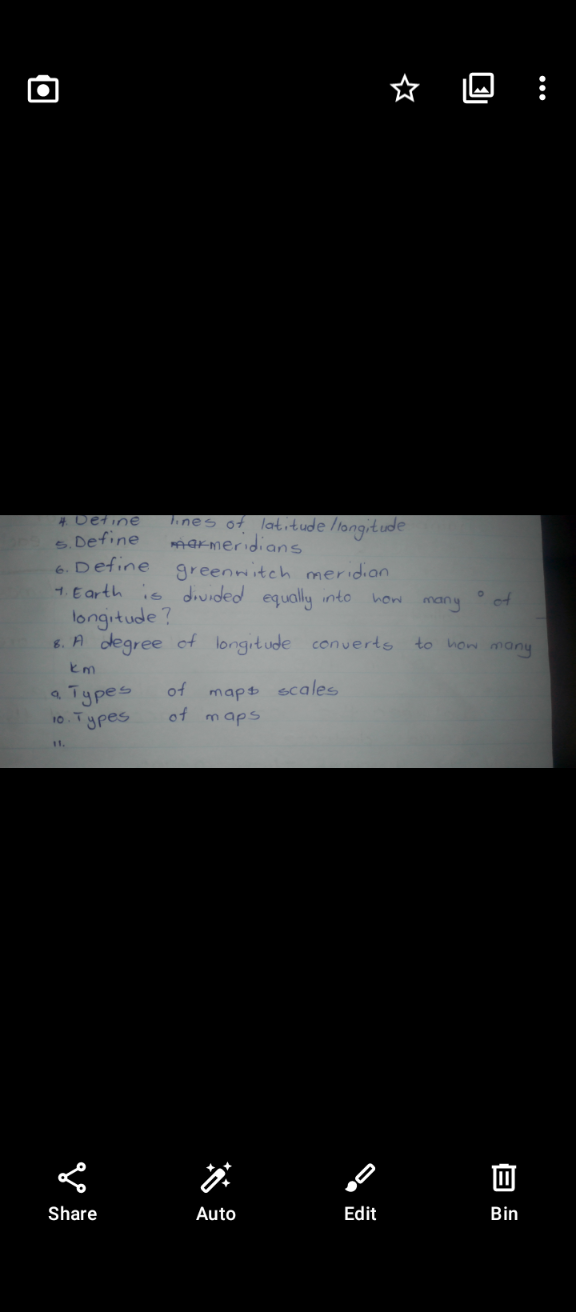 4. Define lines of latitude/longitude
5. Define mar meridians
6. Define greenwitch meridian
7. Earth is divided equally into how many ° of
longitude?
8. A degree of longitude converts to how many
km
9. Types of maps scales
10. Types of maps
11.
Share Auto Edit Bin